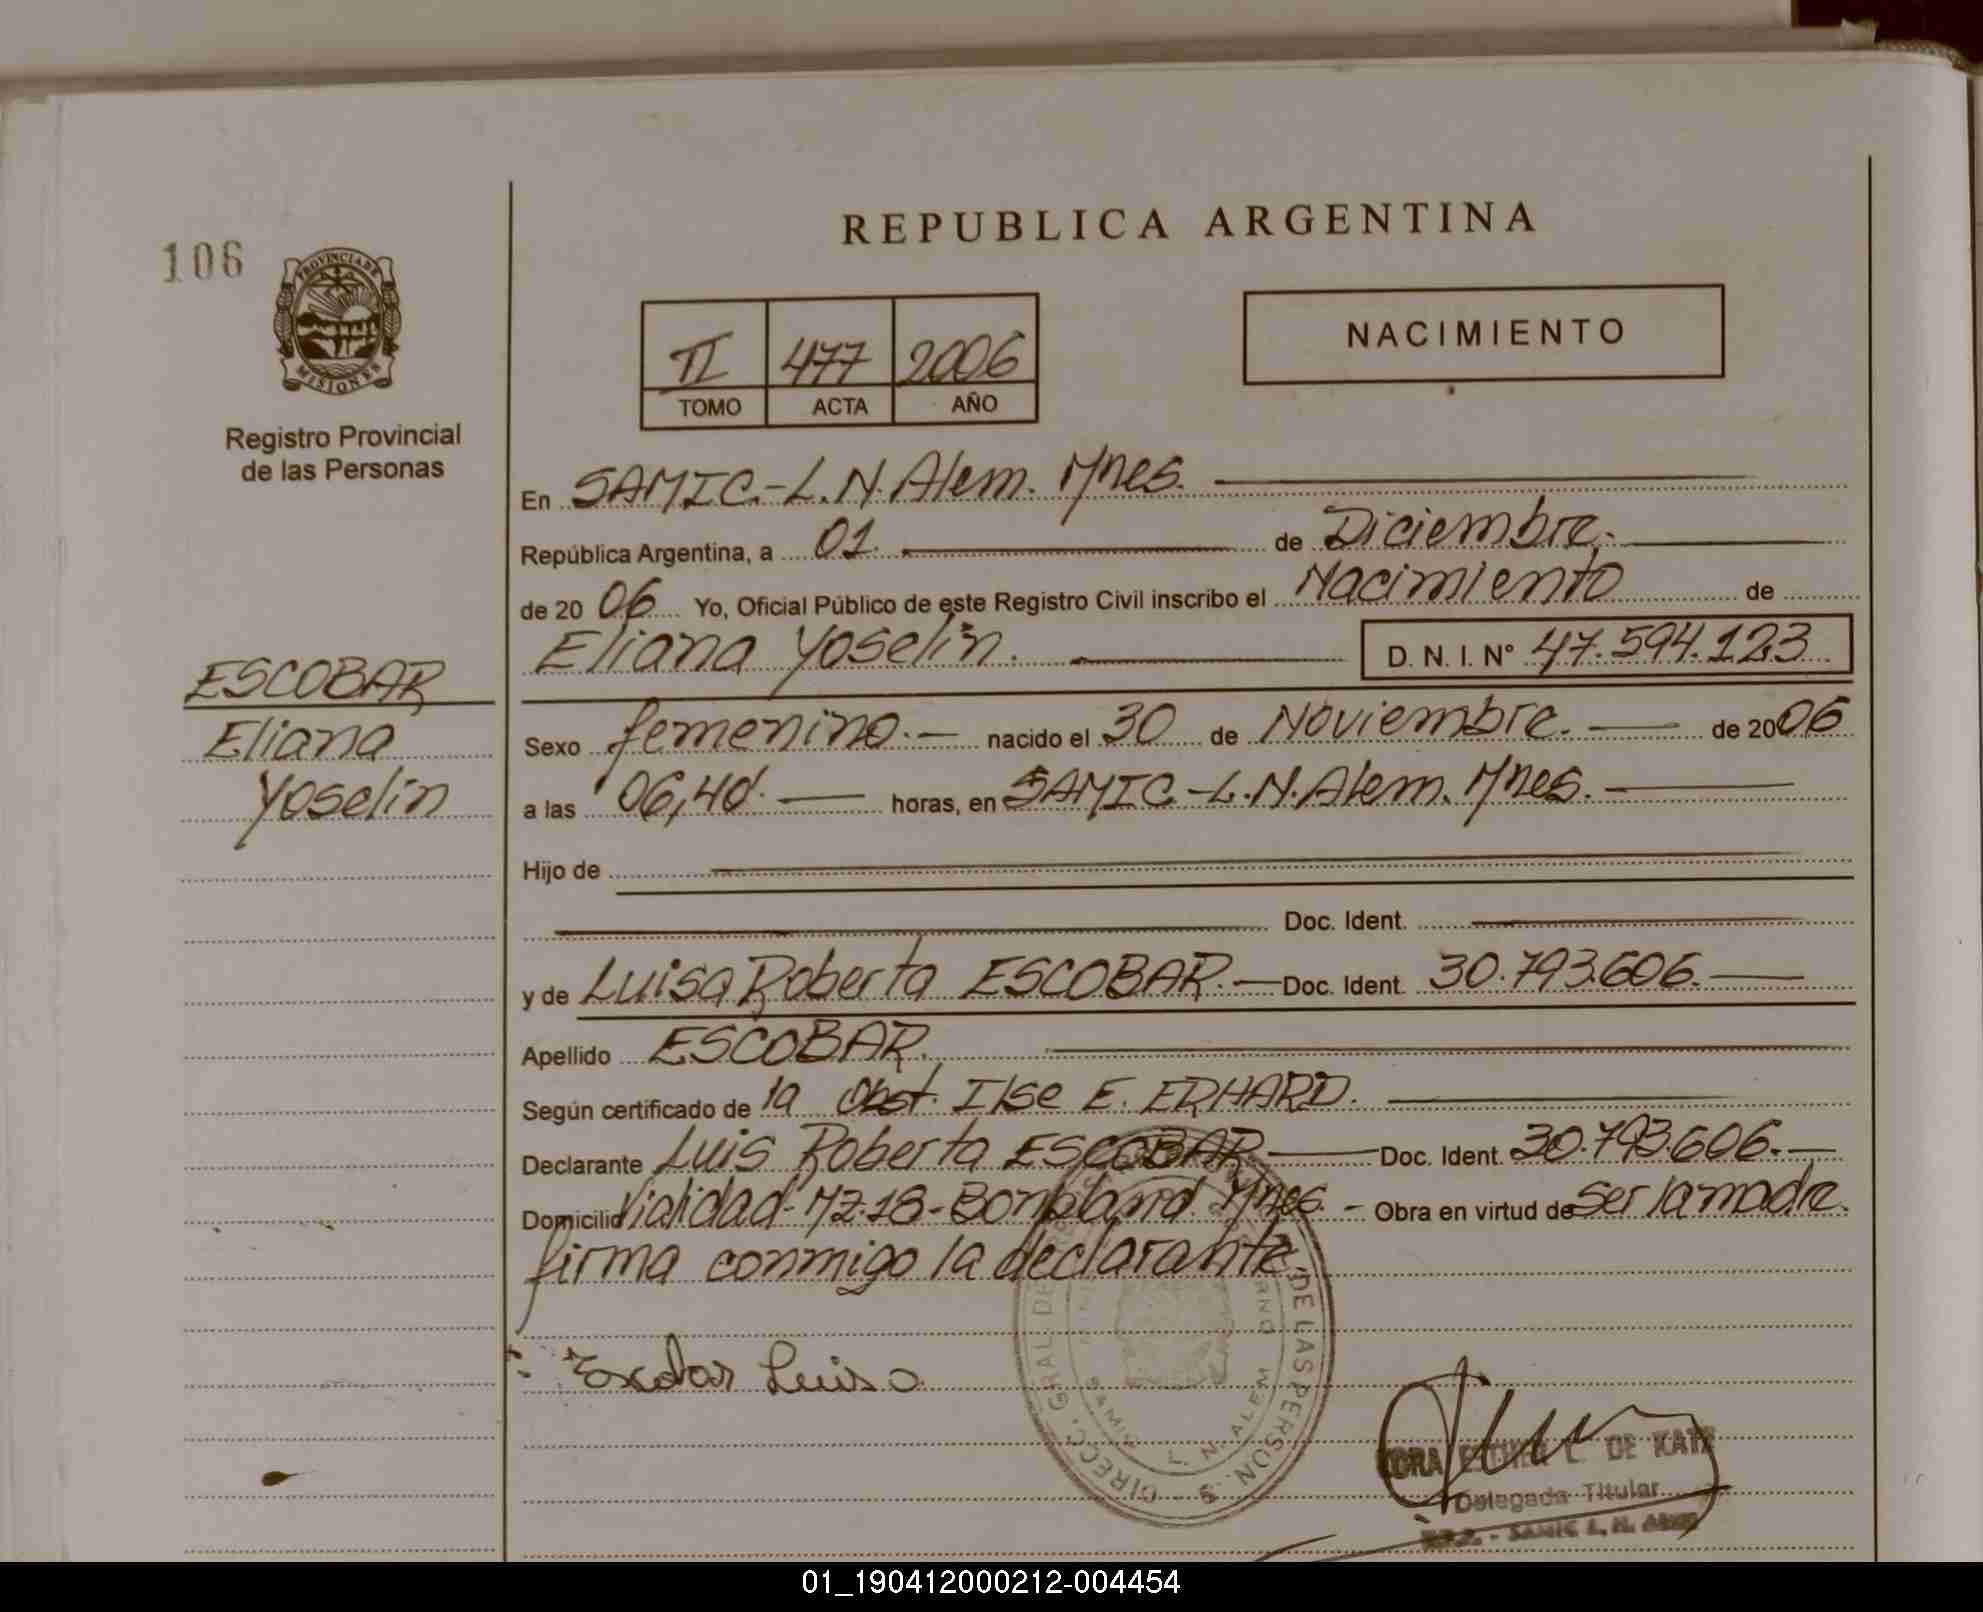 REPUBLICA ARGENTINA
106
PROVINCIA DE
MISIONES
Registro Provincial
de las Personas
II 477 2006
TOMO ACTA AÑO
NACIMIENTO
En SAMIC.-L.N.Alem. Mnes.
República Argentina, a 01. de Diciembre.
de 20 06 Yo, Oficial Público de este Registro Civil inscribo el Nacimiento de
Eliana Yoselin. D. N. I. N° 47.594.123
ESCOBAR
Eliana
Yoselin
Sexo femenino.- nacido el 30 de Noviembre. de 2006
a las 06,40. horas, en SAMIC-L.N.Alem. Mnes.
Hijo de
Doc. Ident.
y de Luisa Roberta ESCOBAR.- Doc. Ident. 30.793.606.
Apellido ESCOBAR.
Según certificado de la Obst. Ilse E. ERHARD.
Declarante Luis Roberta ESCOBAR Doc. Ident. 30.793.606.-
Domicilio Vialidad-Mz.18-Bonpland. Mnes. - Obra en virtud de ser la madre.
firma conmigo la declarante.
Escobar Luisa
DIRECC. GRAL DE DE LAS PERSON.
SAMIC L. N. ALEM
DE KATZ
Delegada Titular
- SAMIC L. N. ALEM
01_190412000212-004454